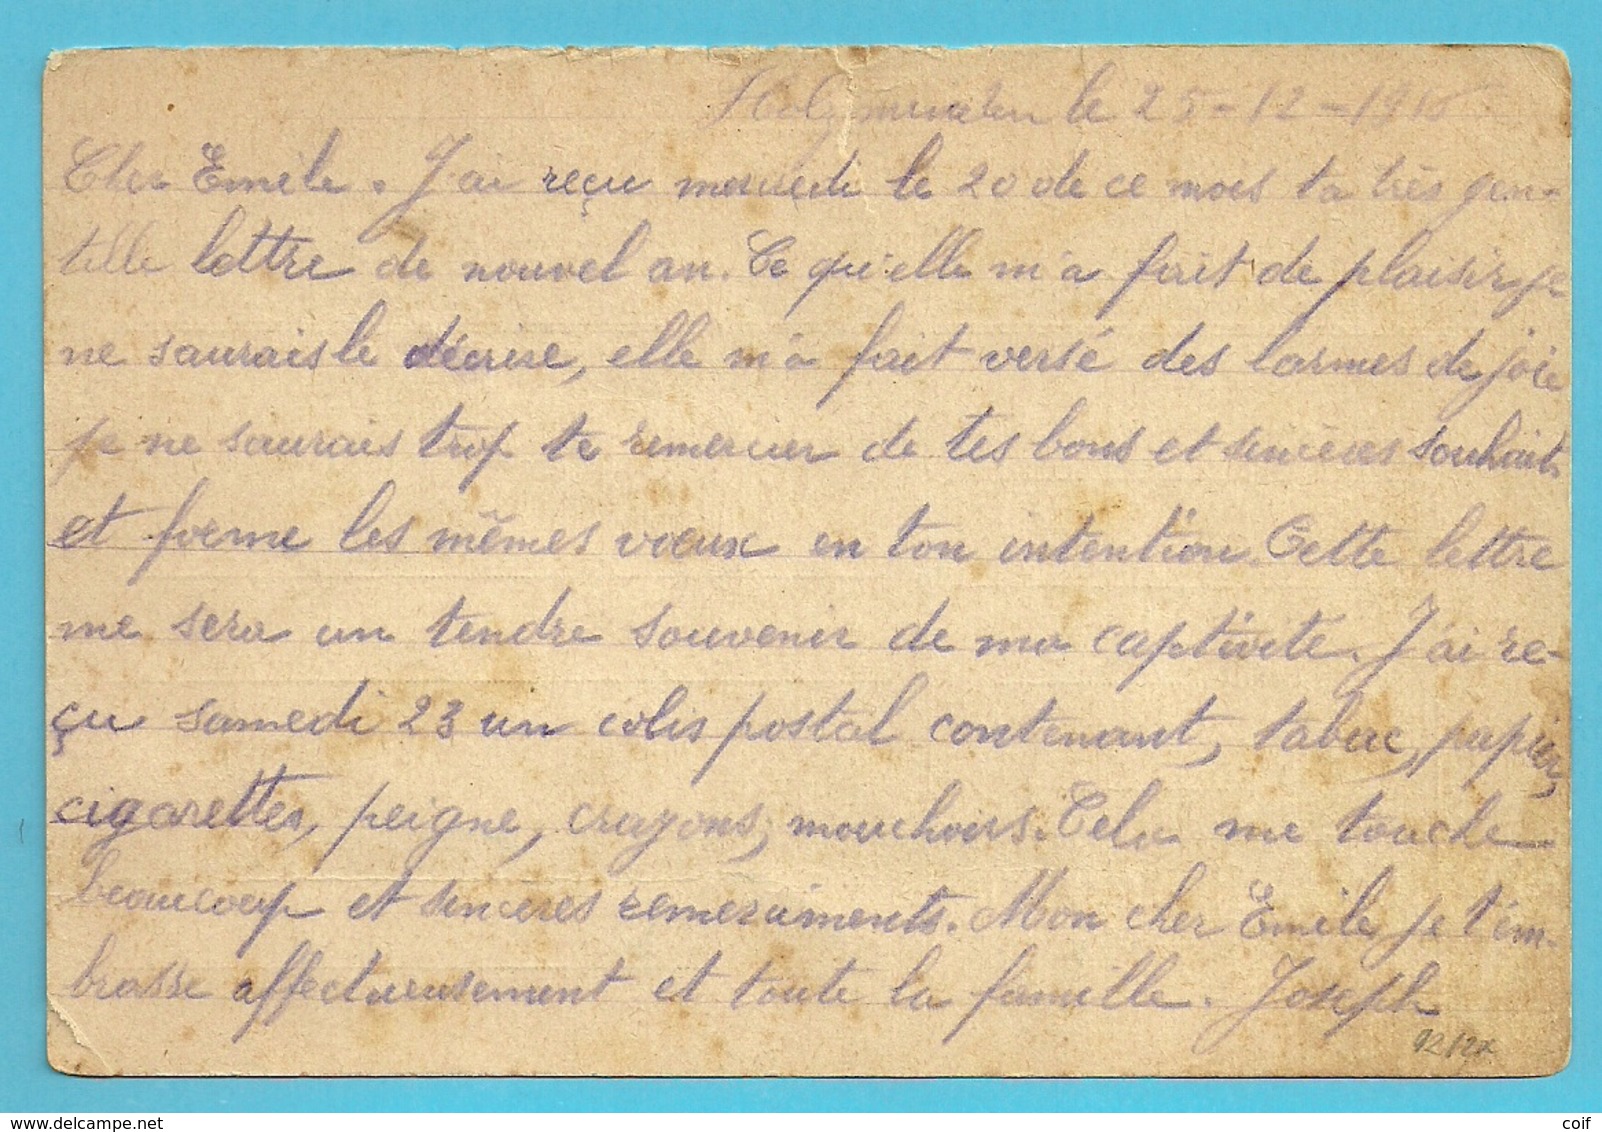 Holzminden le 25-12-1916
Cher Emile. J'ai reçu mercredi le 20 de ce mois ta très gen-
tille lettre de nouvel an. Ce qu'elle m'a fait de plaisir je
ne saurais le décrire, elle m'a fait versé des larmes de joie
je ne saurais trop te remercier de tes bons et sincères souhait
et forme les mêmes vœux en ton intention. Cette lettre
me sera un tendre souvenir de ma captivité. J'ai re-
çu samedi 23 un colis postal contenant, tabac, papier,
cigarettes, peigne, crayons, mouchoirs. Cela me touche
beaucoup et sincères remerciments. Mon cher Emile je t'em-
brasse affectueusement et toute la famille. Joseph
delcampe.net
coif